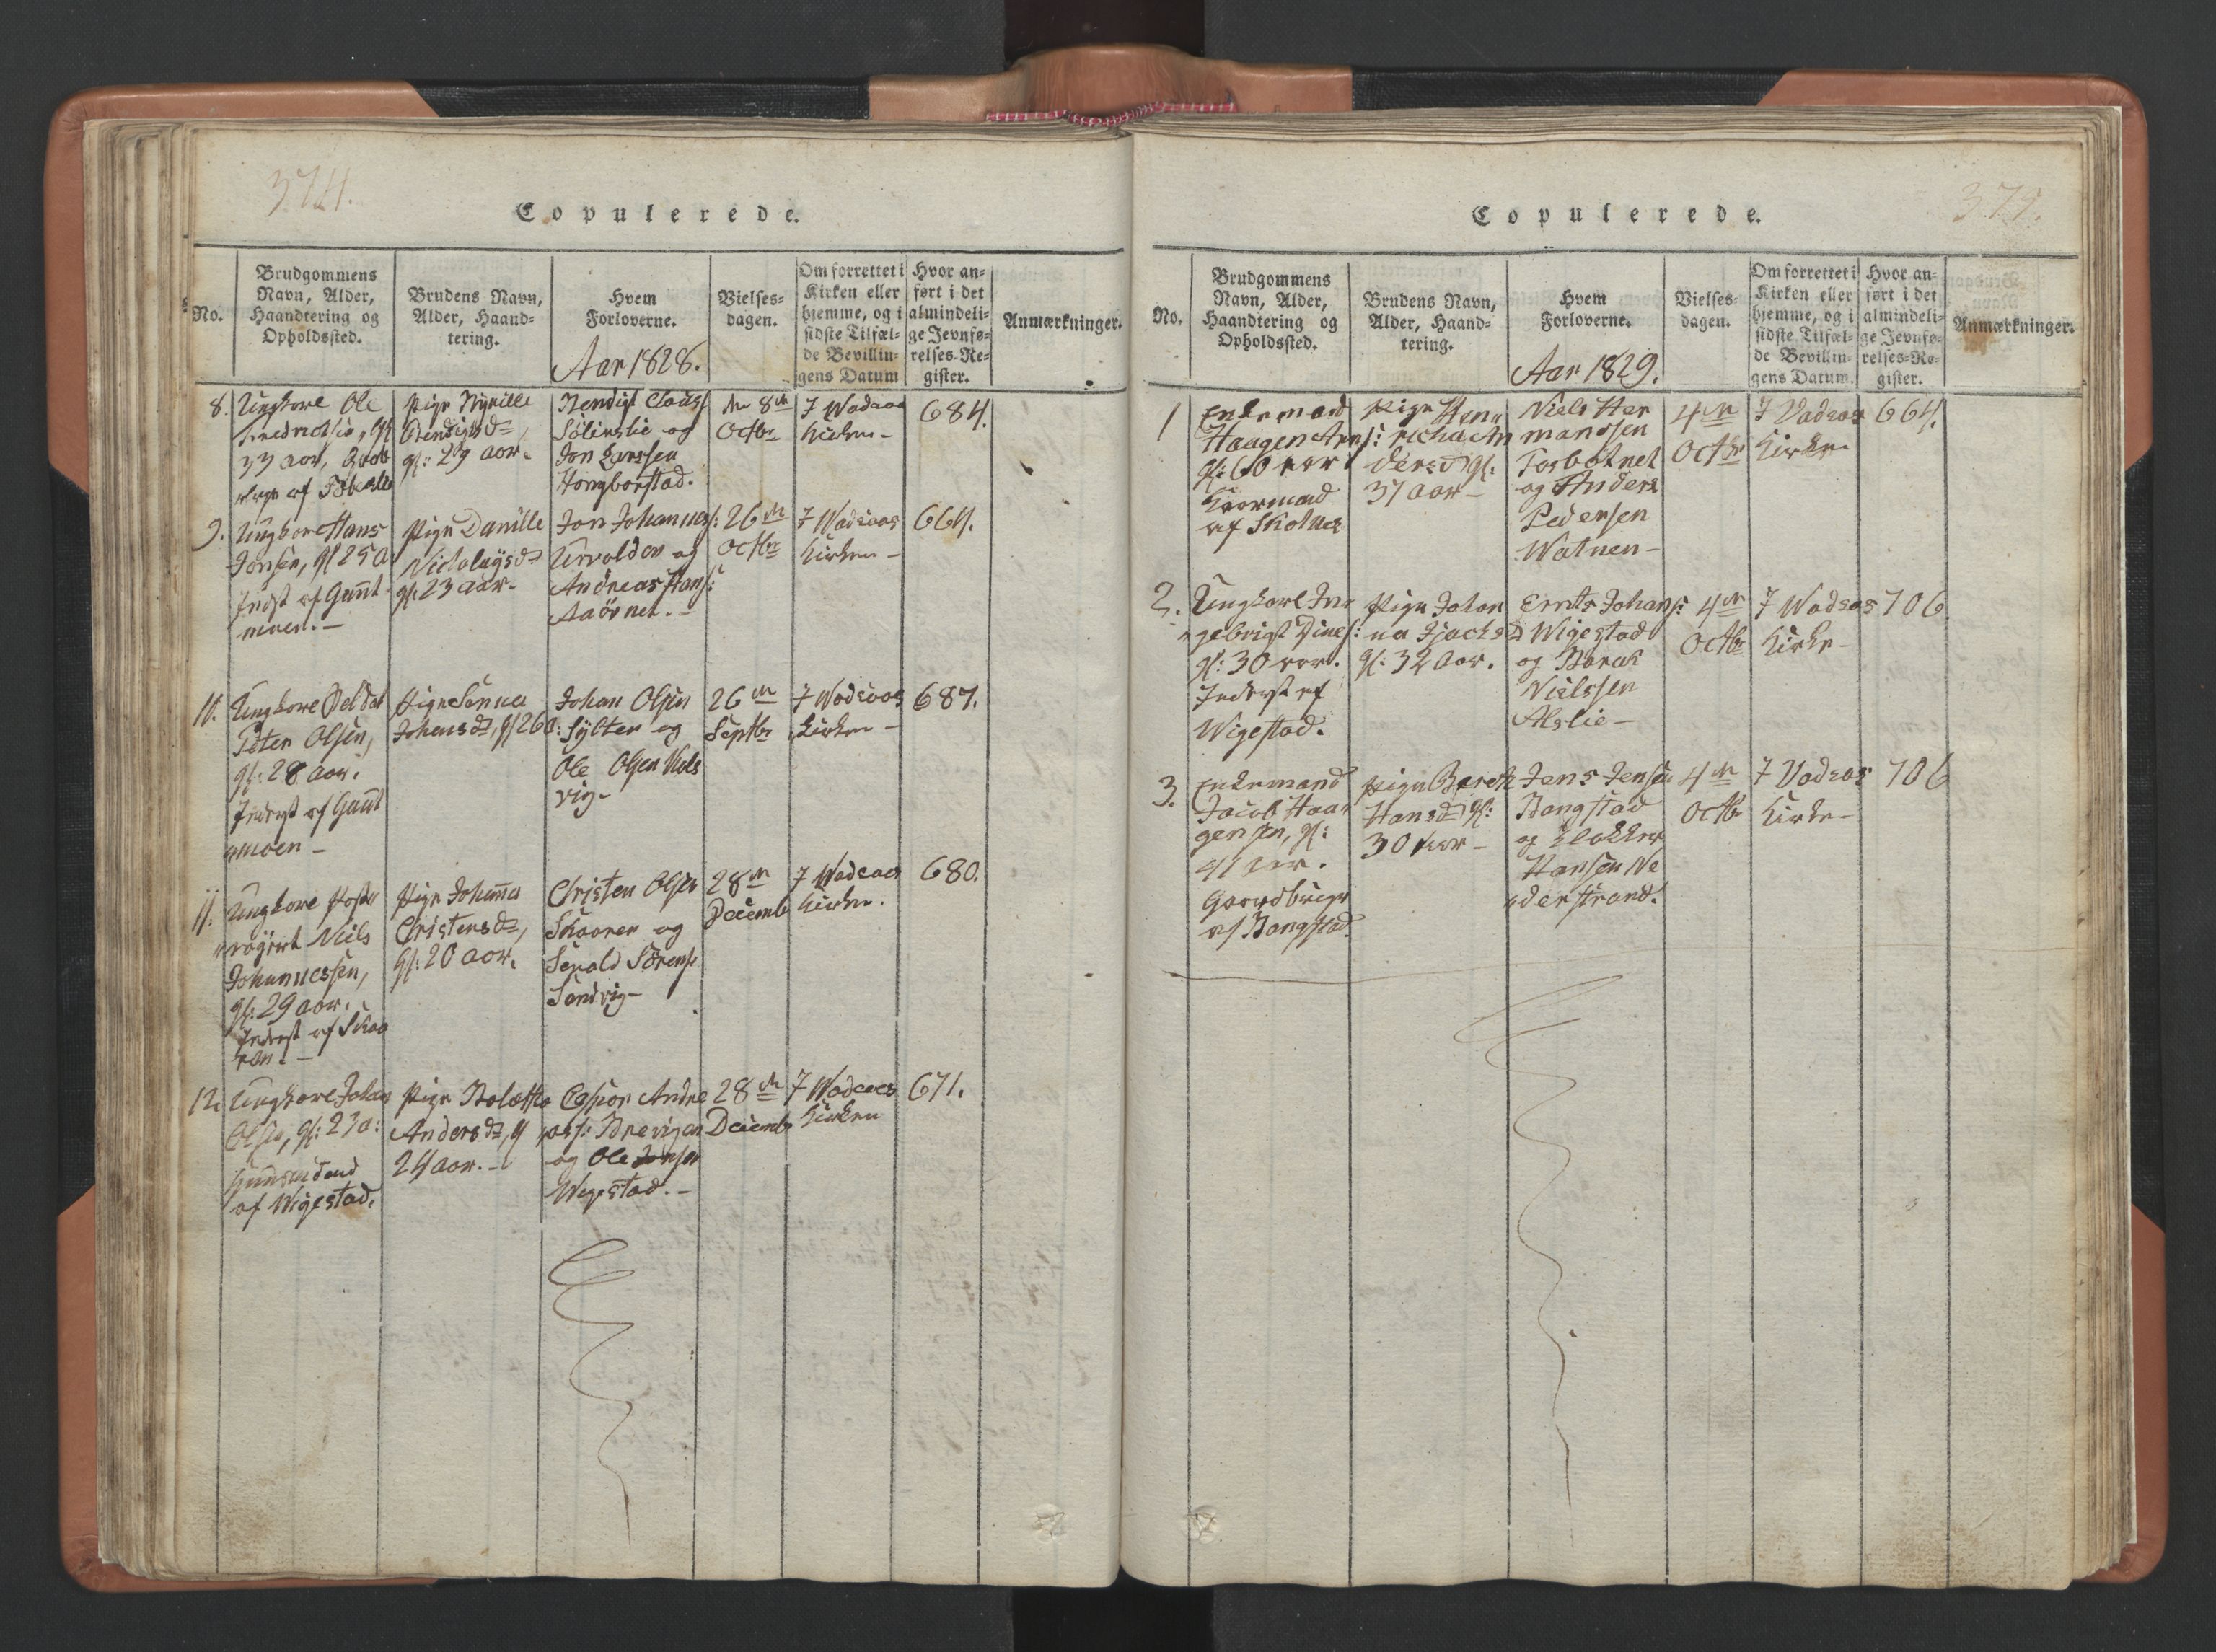 374.
Copulerede.
No.
Brudgommens
Navn, Alder,
Haandtering og
Opholdssted.
Brudens Navn,
Alder, Haand-
tering.
Hvem
Forloverne.
Aar 1828.
Vielses-
dagen.
Om forrettet i
Kirken eller
hjemme, og i
sidste Tilfæl-
de Bevillin-
gens Datum
Hvor an-
ført i det
almindeli-
ge Jevnfø-
relses-Re-
gister.
Anmærkninger.
8.
Ungkarl Ole
33 aar,
Pige
gl: 29 aar.
Bendigt Claus
og
Jon Larssen
Hongborstad.
8de
Octbr
I Wadsaas
Kirken -
684.
9.
Ungkarl Hans
Jonsen, gl 25 a
Indst af
Pige Danille
Nicolaysd
gl: 23 aar.
Jon Johannes:
og
Andreas Hans:
26de
Octbr
I Wadsaas
Kirken -
664.
10.
Ungkarl
Peter Olsen,
gl: 28 aar.
Inderst af
Pige
Johansd, gl 26 a:
Johan Olsen
Sylten og
Ole Olsen
vig-
26de
Septbr
I Wadsaas
Kirken -
687.
11.
Ungkarl
Niels
Johannessen,
gl: 29 aar.
Inderst af Skaa
ren. -
Pige Johanna
Cristensd,
gl: 20 aar.
Christen Olsen
Skaaren og
Sørens
Sandvig-
28de
Decemb
I Wadsaas
Kirken.
680.
12.
Ungkarl Johan
Olsen, gl: 23 a:
af Wigestad.
Pige
Andersd, gl
24 aar. -
Caspar Andre
og Ole Jensen
Wigestad. -
28de
Decembr
I Wadsaas
Kirken
671.
375.
Copulerede.
No.
Brudgommens
Navn, Alder,
Haandtering og
Opholdssted.
Brudens Navn,
Alder, Haand-
tering.
Hvem
Forloverne.
Aar 1829.
Vielses-
dagen.
Om forrettet i
Kirken eller
hjemme, og i
sidste Tilfæl-
de Bevillin-
gens Datum.
Hvor an-
ført i det
almindeli-
ge Jevnfø-
relses-Re-
gister.
Anmærkninger.
1
Enkemand
Haagen Arn:
gl: 60 aar
af Skolnes
Pige Hen
richa An
dersd gl:
37 aar -
Niels Her
mandsen
Torbotnet
og Anders
Pedersen
Watnen -
4de
Octbr
I Vadsaas
Kirke-
664.
2.
Ungkarl In
gebrigt Dines:
gl: 30 aar.
Inderst af
Wigestad.
Pige Johan
na
gl: 32 aar.
Ernts Johans:
Wigestad
og
Nielssen
Alslie -
4de
Octbr
I Wadsaas
Kirke -
706
3.
Enkemand
Jacob Haa
gensen, gl:
41 aar.
Gaardbruger
af Bangstad.
Pige Bereth
Hansd gl:
30 aar -
Jens Jensen
Bangstad
og Klokker
Hansen Ne
derstrand.
4de
Octbr
I Vadsaas
Kirke -
706